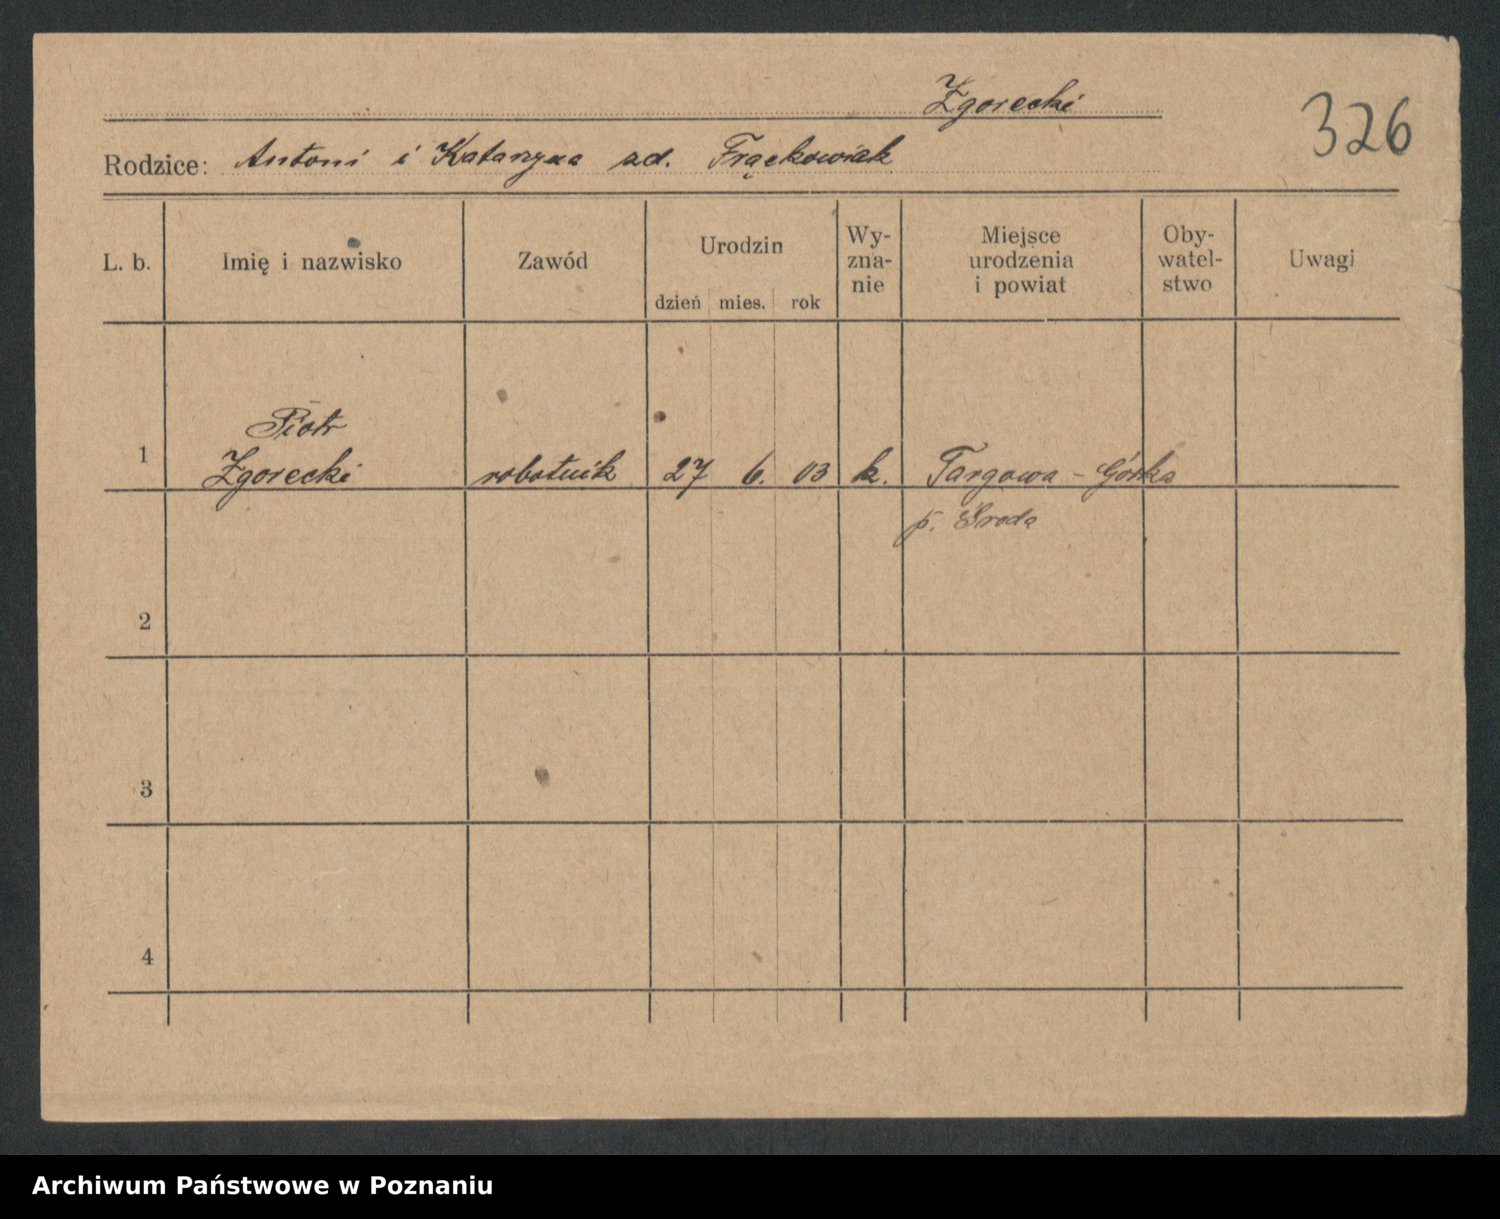 Zgorecki
326
Rodzice: Antoni i Katarzyna zd. Frąckowiak
L. b. Imię i nazwisko Zawód Urodzin dzień mies. rok Wy-
zna-
nie Miejsce
urodzenia
i powiat Oby-
watel-
stwo Uwagi
Piotr
1 Zgorecki robotnik 27 6. 03 k. Targowa - Górka
p. Środa
2
3
4
Archiwum Państwowe w Poznaniu